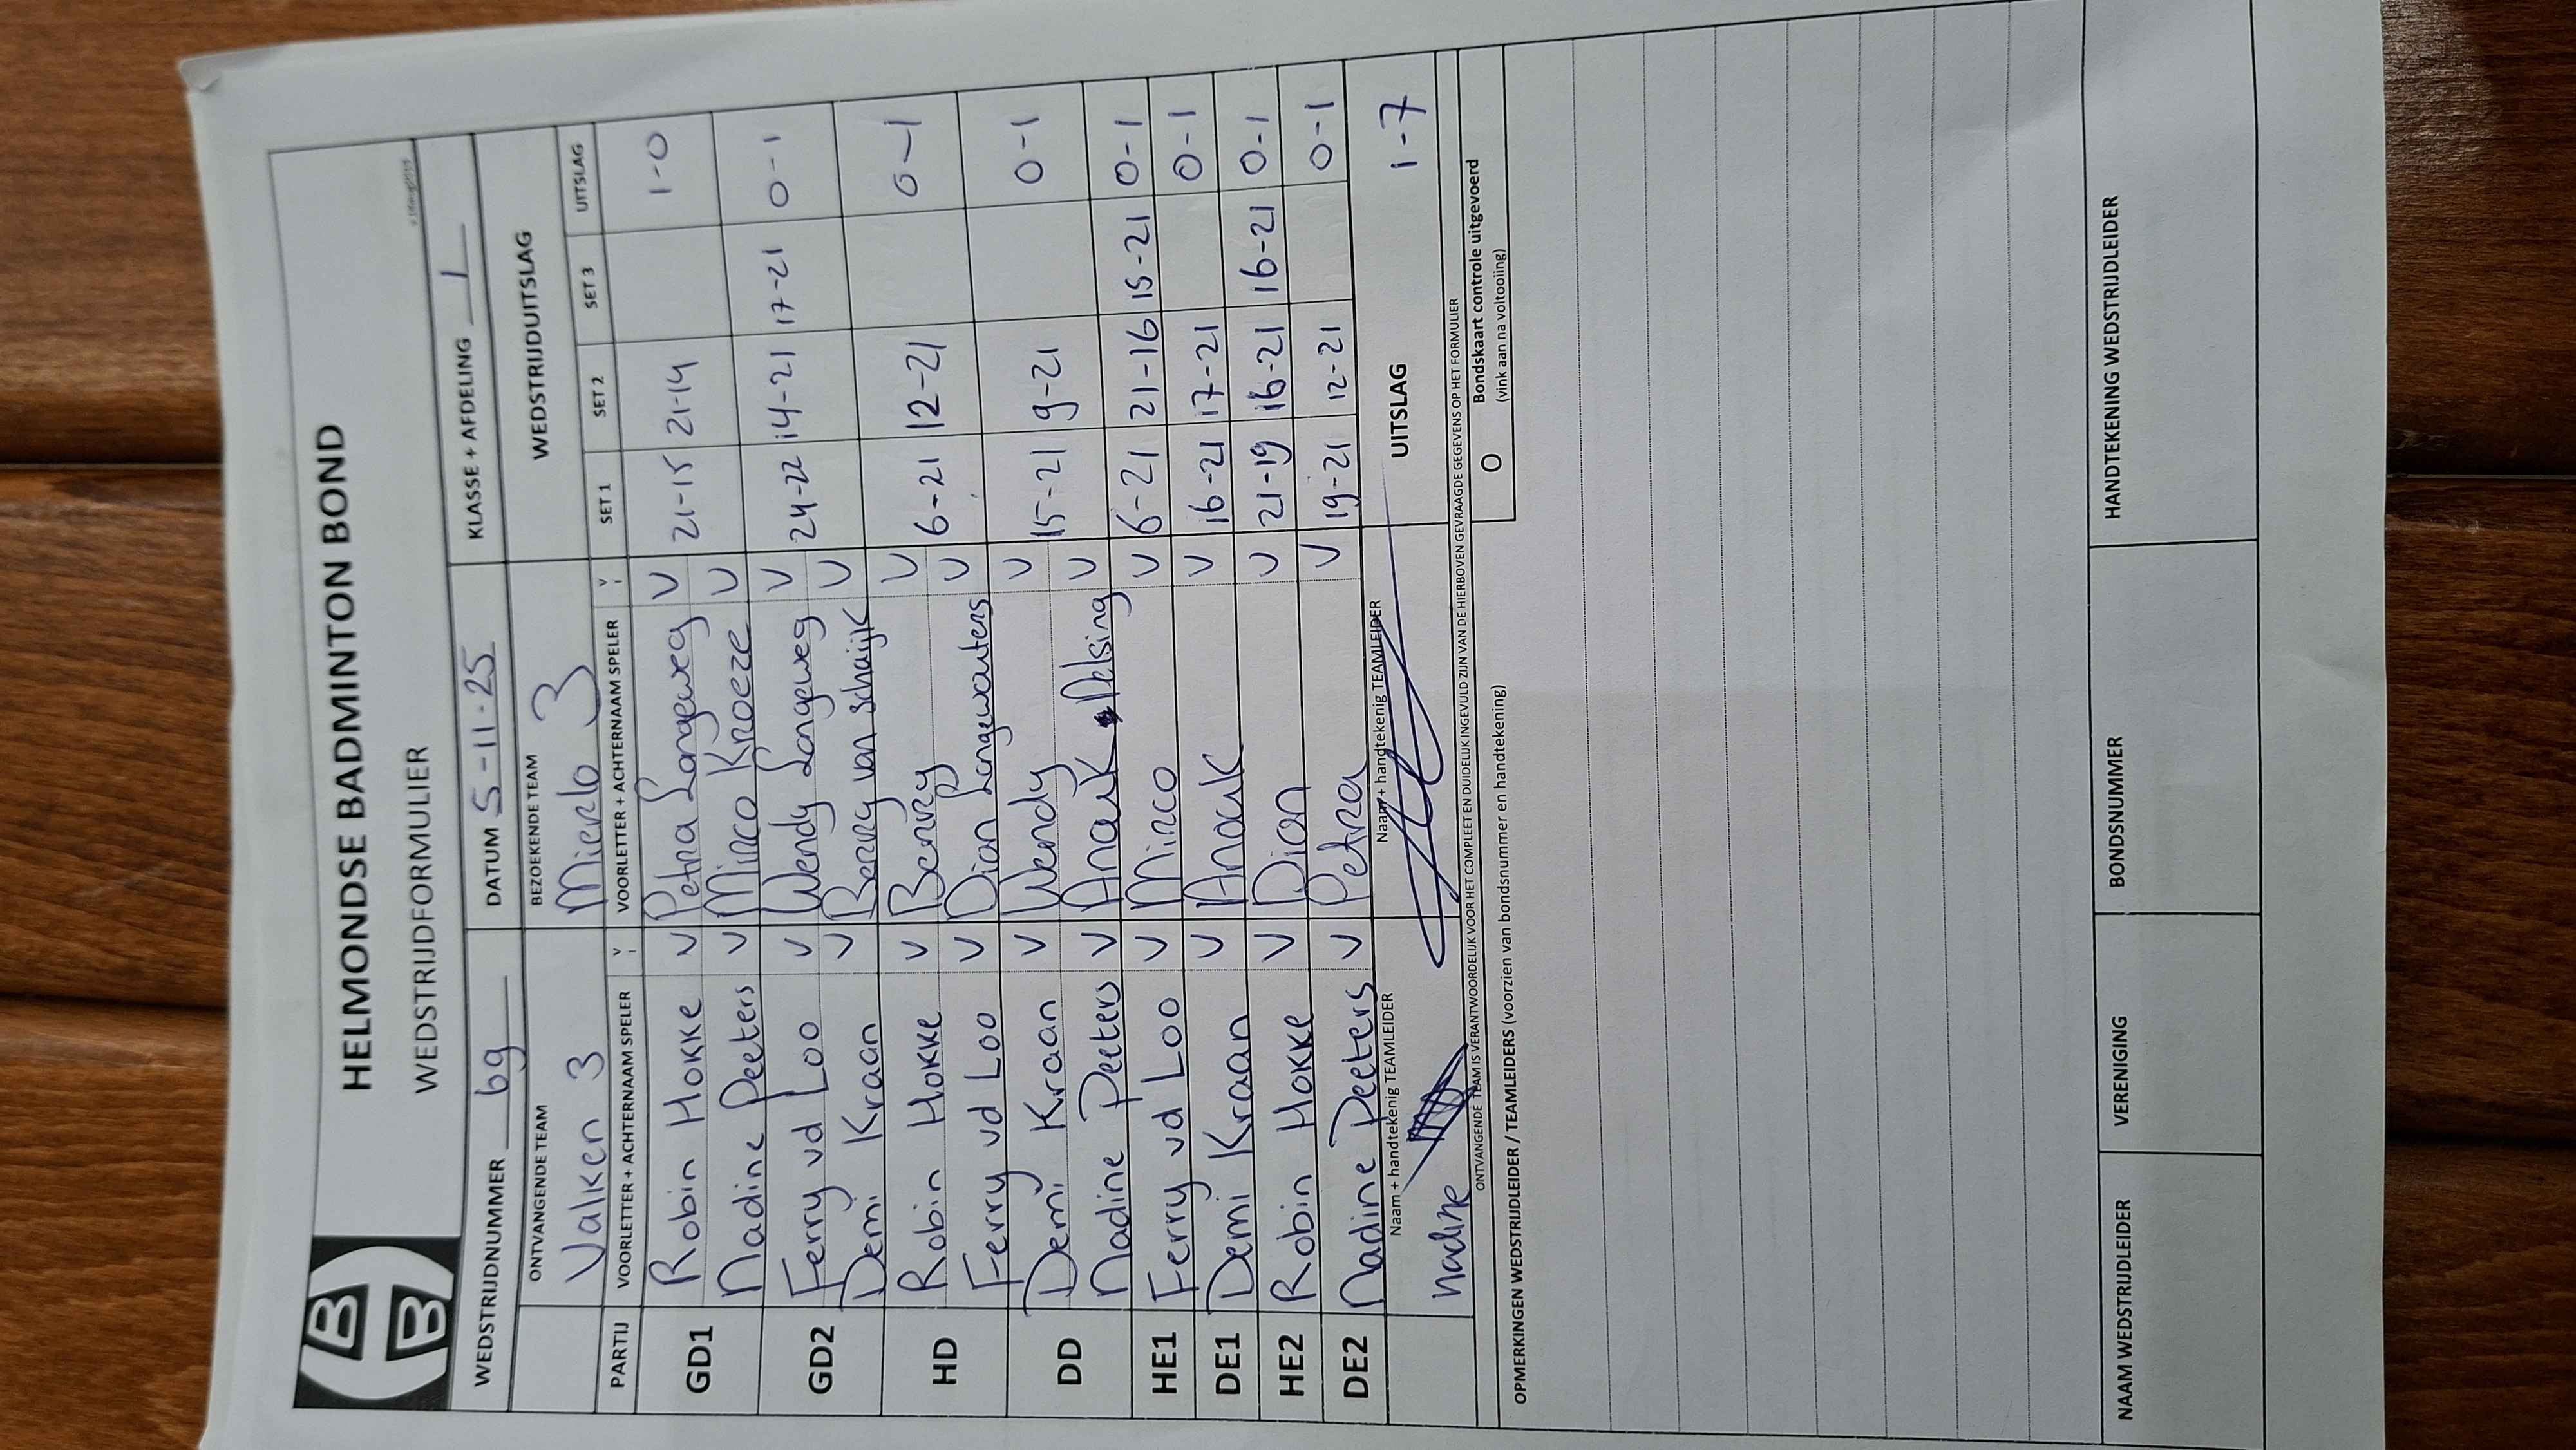 HBB
HELMONDSE BADMINTON BOND
WEDSTRIJDFORMULIER
WEDSTRIJDNUMMER 69 DATUM 5-11-25 KLASSE + AFDELING 1
ONTVANGENDE TEAM BEZOEKENDE TEAM WEDSTRIJDUITSLAG
Valken 3 Mierlo 3
PARTIJ VOORLETTER + ACHTERNAAM SPELER V VOORLETTER + ACHTERNAAM SPELER V SET 1 SET 2 SET 3 UITSLAG
GD1 Robin Hokke V Petra Langeweg V 21-15 21-14 1-0
Nadine Peeters V Mirco Kroeze V
GD2 Ferry vd Loo V Wendy Langeweg V 24-22 14-21 17-21 0-1
Demi Kraan V Berry van Schaijk V
HD Robin Hokke V Berry V 6-21 12-21 0-1
Ferry vd Loo V Dion Langewouters V
DD Demi Kraan V Wendy V 15-21 9-21 0-1
Nadine Peeters V Anouk V
HE1 Ferry vd Loo V Mirco V 6-21 21-16 15-21 0-1
DE1 Demi Kraan V Anouk V 16-21 17-21 0-1
HE2 Robin Hokke V Dion V 21-19 16-21 16-21 0-1
DE2 Nadine Peeters V Petra V 19-21 12-21 0-1
Naam + handtekenig TEAMLEIDER Naam + handtekenig TEAMLEIDER UITSLAG 1-7
Nadine
ONTVANGENDE TEAM IS VERANTWOORDELIJK VOOR HET COMPLEET EN DUIDELIJK INGEVULD ZIJN VAN DE HIERBOVEN GEVRAAGDE GEGEVENS OP HET FORMULIER
O Bondskaart controle uitgevoerd
(vink aan na voltooiing)
OPMERKINGEN WEDSTRIJDLEIDER / TEAMLEIDERS (voorzien van bondsnummer en handtekening)
NAAM WEDSTRIJDLEIDER VERENIGING BONDSNUMMER HANDTEKENING WEDSTRIJDLEIDER